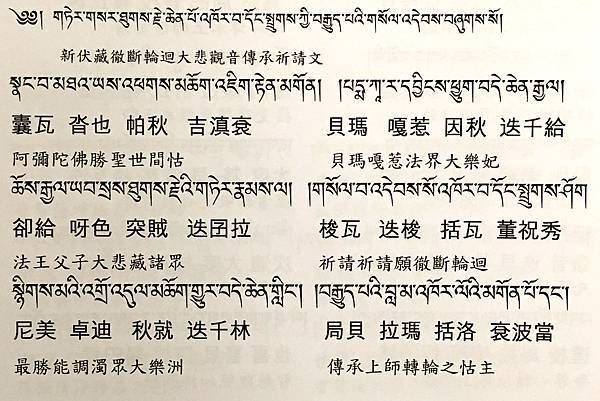 ༄༅། །གཏེར་གསར་ཐུགས་རྗེ་ཆེན་པོ་འཁོར་བ་དོང་སྤྲུགས་ཀྱི་བརྒྱུད་པའི་གསོལ་འདེབས་བཞུགས་སོ།
新伏藏徹斷輪迴大悲觀音傳承祈請文
སྣང་བ་མཐའ་ཡས་འཕགས་མཆོག་འཇིག་རྟེན་མགོན། །པདྨ་ཀཱ་ར་དབྱིངས་ཕྱུག་བདེ་ཆེན་རྒྱལ།
囊瓦 沓也 帕秋 吉滇袞 貝瑪 嘎惹 因秋 迭千給
阿彌陀佛勝聖世間怙 貝瑪嘎惹法界大樂妃
ཆོས་རྒྱལ་ཡབ་སྲས་ཐུགས་རྗེའི་གཏེར་རྣམས་ལ། །གསོལ་བ་འདེབས་སོ་འཁོར་བ་དོང་སྤྲུགས་ཤོག
卻給 呀色 突賊 迭囝拉 梭瓦 迭梭 括瓦 董祝秀
法王父子大悲藏諸眾 祈請祈請願徹斷輪迴
སྙིགས་མའི་འགྲོ་འདུལ་མཆོག་གྱུར་བདེ་ཆེན་གླིང་། །བརྒྱུད་པའི་བླ་མ་འཁོར་ལོའི་མགོན་པོ་དང་།
尼美 卓迪 秋就 迭千林 局貝 拉瑪 括洛 袞波當
最勝能調濁眾大樂洲 傳承上師轉輪之怙主